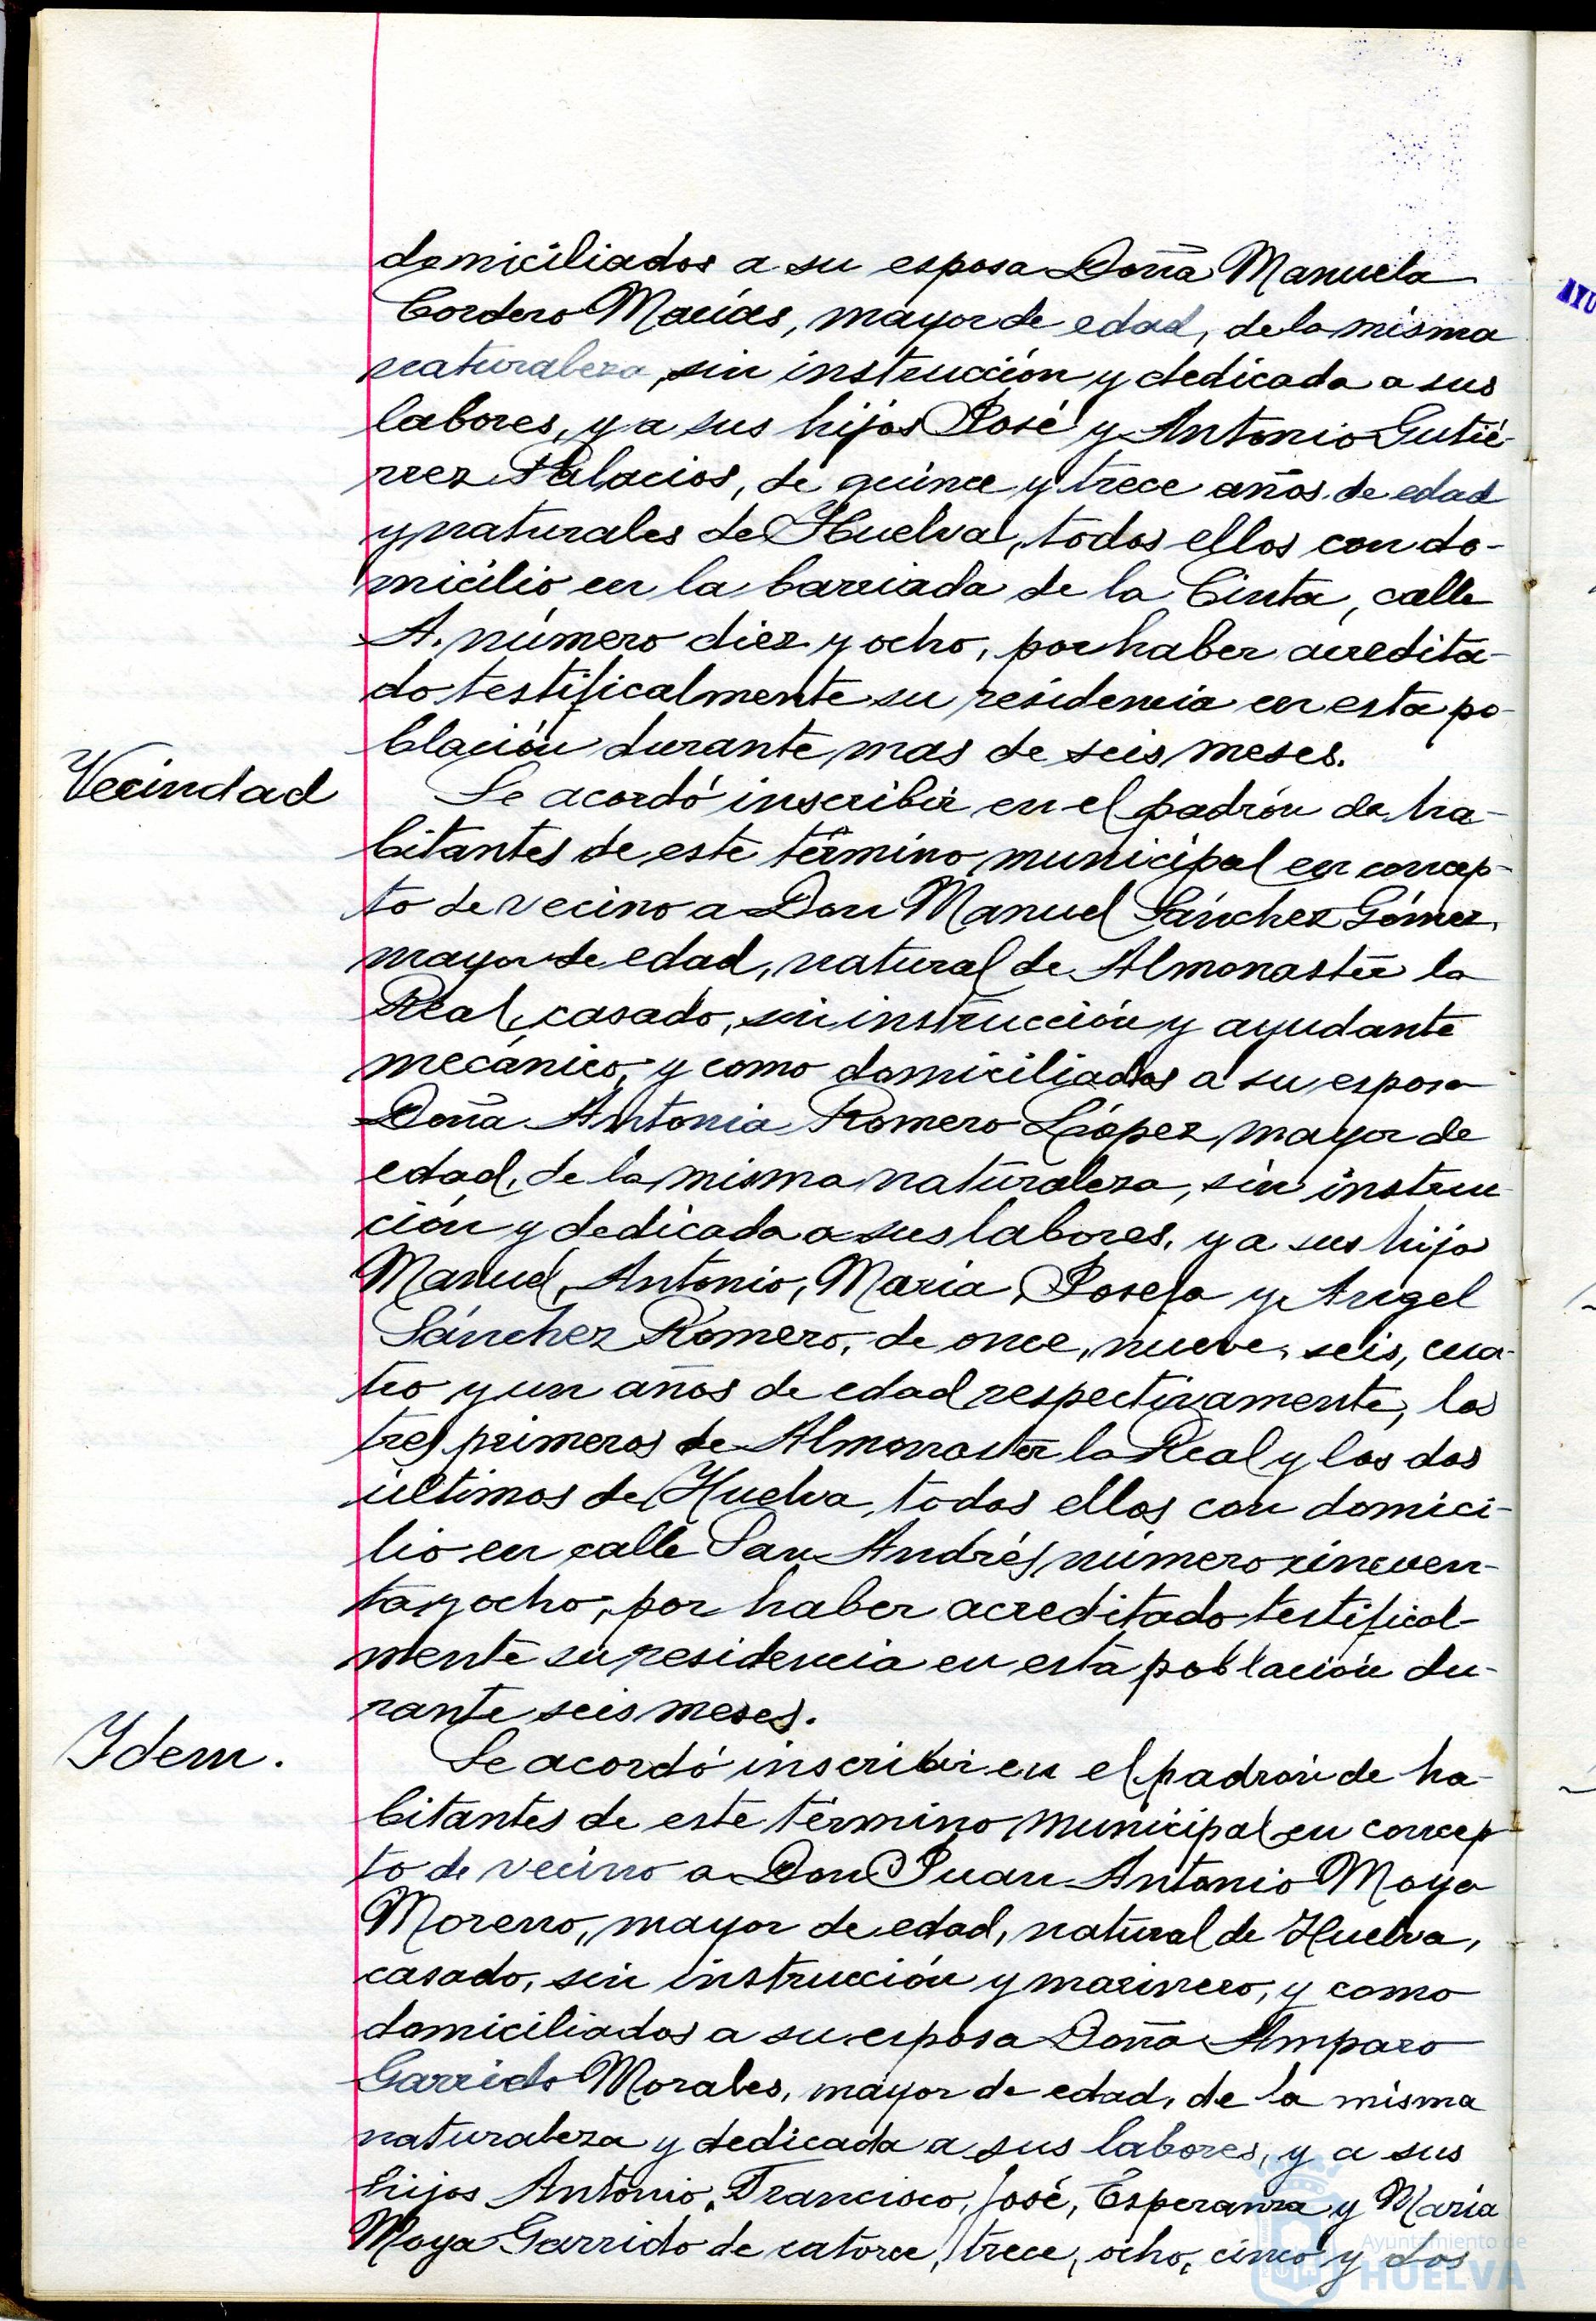 domiciliados a su esposa Doña Manuela
Cordero Macías, mayor de edad, de la misma
naturaleza, sin instrucción y dedicada a sus
labores, y a sus hijos José y Antonio Gutié-
rrez Palacios, de quince y trece años de edad
y naturales de Huelva, todos ellos con do-
micilio en la barriada de la Cinta, calle
A. número diez y ocho, por haber acredita-
do testificalmente su residencia en esta po-
blación durante mas de seis meses.
Vecindad
Se acordó inscribir en el padrón de ha-
bitantes de este término municipal en concep-
to de vecino a Don Manuel Sánchez Gómez,
mayor de edad, natural de Almonaster la
Real, casado, sin instrucción y ayudante
mecánico, y como domiciliados a su esposa
Doña Antonia Romero López, mayor de
edad, de la misma naturaleza, sin instruc-
ción y dedicada a sus labores, y a sus hijos
Manuel, Antonio, María, Josefa y Angel
Sánchez Romero, de once, nueve, seis, cua-
tro y un años de edad respectivamente, los
tres primeros de Almonaster la Real y los dos
últimos de Huelva, todos ellos con domici-
lio en calle San Andrés, número cincuen-
ta y ocho, por haber acreditado testifical-
mente su residencia en esta población du-
rante seis meses.
Idem.
Se acordó inscribir en el padrón de ha-
bitantes de este término municipal en concep
to de vecino a Don Juan Antonio Moya
Moreno, mayor de edad, natural de Huelva,
casado, sin instrucción y marinero, y como
domiciliados a su esposa Doña Amparo
Garrido Morales, mayor de edad, de la misma
naturaleza y dedicada a sus labores, y a sus
hijos Antonio, Francisco, José, Esperanza y María
Moya Garrido de catorce, trece, ocho, cinco y dos
AYU
Ayuntamiento de
HUELVA